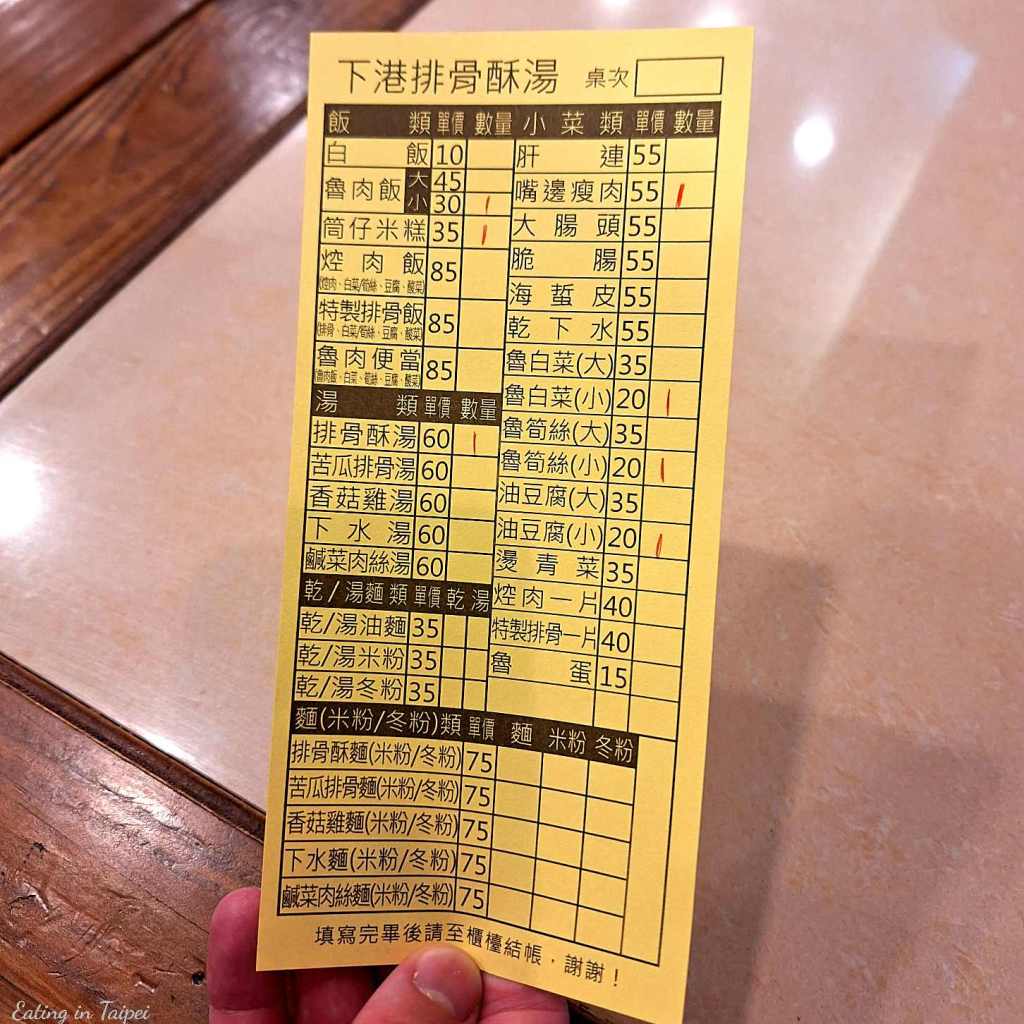 下港排骨酥湯 桌次
飯類 單價 數量
白飯 10
魯肉飯 大 45
小 30
筒仔米糕 35
焢肉飯 85
(焢肉、白菜/筍絲、豆腐、酸菜)
特製排骨飯 85
(排骨、白菜/筍絲、豆腐、酸菜)
魯肉便當 85
(魯肉飯、白菜、筍絲、豆腐、酸菜)
湯類 單價 數量
排骨酥湯 60
苦瓜排骨湯 60
香菇雞湯 60
下水湯 60
鹹菜肉絲湯 60
乾/湯麵類 單價 乾 湯
乾/湯油麵 35
乾/湯米粉 35
乾/湯冬粉 35
小菜類 單價 數量
肝連 55
嘴邊瘦肉 55
大腸頭 55
脆腸 55
海蜇皮 55
乾下水 55
魯白菜(大) 35
魯白菜(小) 20
魯筍絲(大) 35
魯筍絲(小) 20
油豆腐(大) 35
油豆腐(小) 20
燙青菜 35
焢肉一片 40
特製排骨一片 40
魯蛋 15
麵(米粉/冬粉)類 單價 麵 米粉 冬粉
排骨酥麵(米粉/冬粉) 75
苦瓜排骨麵(米粉/冬粉) 75
香菇雞麵(米粉/冬粉) 75
下水麵(米粉/冬粉) 75
鹹菜肉絲麵(米粉/冬粉) 75
填寫完畢後請至櫃檯結帳，謝謝！
Eating in Taipei